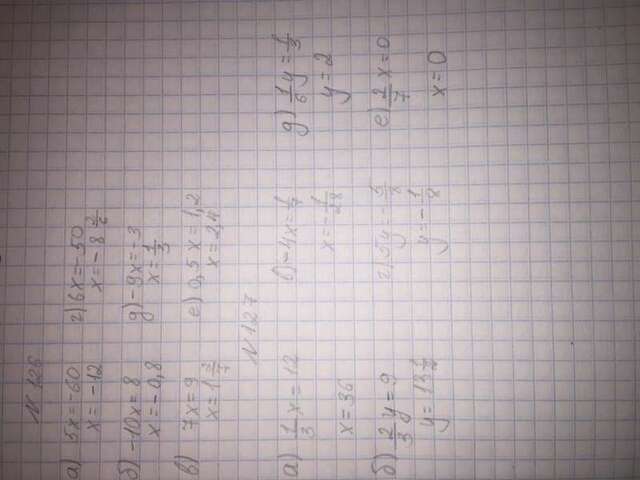 N 126
а) 5x=-60
x=-12
г) 6x=-50
x=-8 2/6
б) -10x=8
x=-0,8
д) -9x=-3
x=1/3
в) 7x=9
x=1 2/7
е) 0,5x=1,2
x=2,4
N 127
а) 1/3 x=12
x=36
в) -4x=1/7
x=-1/28
д) 1/6 y=1/3
y=2
б) 2/3 y=9
y=13 1/2
г) 5y=-5/8
y=-1/8
е) 2/7 x=0
x=0